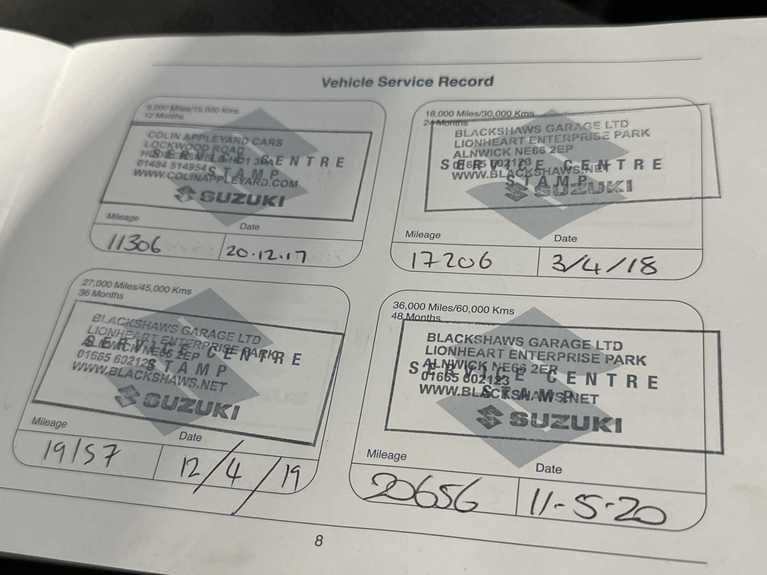 Vehicle Service Record
9,000 Miles/15,000 Kms
12 Months
COLIN APPLEYARD CARS
LOCKWOOD ROAD
SERVICE CENTRE
01484 514954
STAMP
WWW.COLINAPPLEYARD.COM
SUZUKI
Mileage Date
11306 20.12.17
18,000 Miles/30,000 Kms
24 Months
BLACKSHAWS GARAGE LTD
LIONHEART ENTERPRISE PARK
ALNWICK NE66 2EP
SERVICE CENTRE
01665 602123
WWW.BLACKSHAWS.NET
STAMP
SUZUKI
Mileage Date
17206 3/4/18
27,000 Miles/45,000 Kms
36 Months
BLACKSHAWS GARAGE LTD
LIONHEART ENTERPRISE PARK
ALNWICK NE66 2EP
SERVICE CENTRE
01665 602123
STAMP
WWW.BLACKSHAWS.NET
SUZUKI
Mileage Date
19157 12/4/19
36,000 Miles/60,000 Kms
48 Months
BLACKSHAWS GARAGE LTD
LIONHEART ENTERPRISE PARK
ALNWICK NE66 2EP
SERVICE CENTRE
01665 602123
WWW.BLACKSHAWS.NET
STAMP
SUZUKI
Mileage Date
20656 11-5-20
8